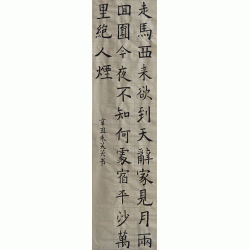 走馬西来欲到天辭家見月兩
回圓今夜不知何處宿平沙萬
里絕人煙
辛丑